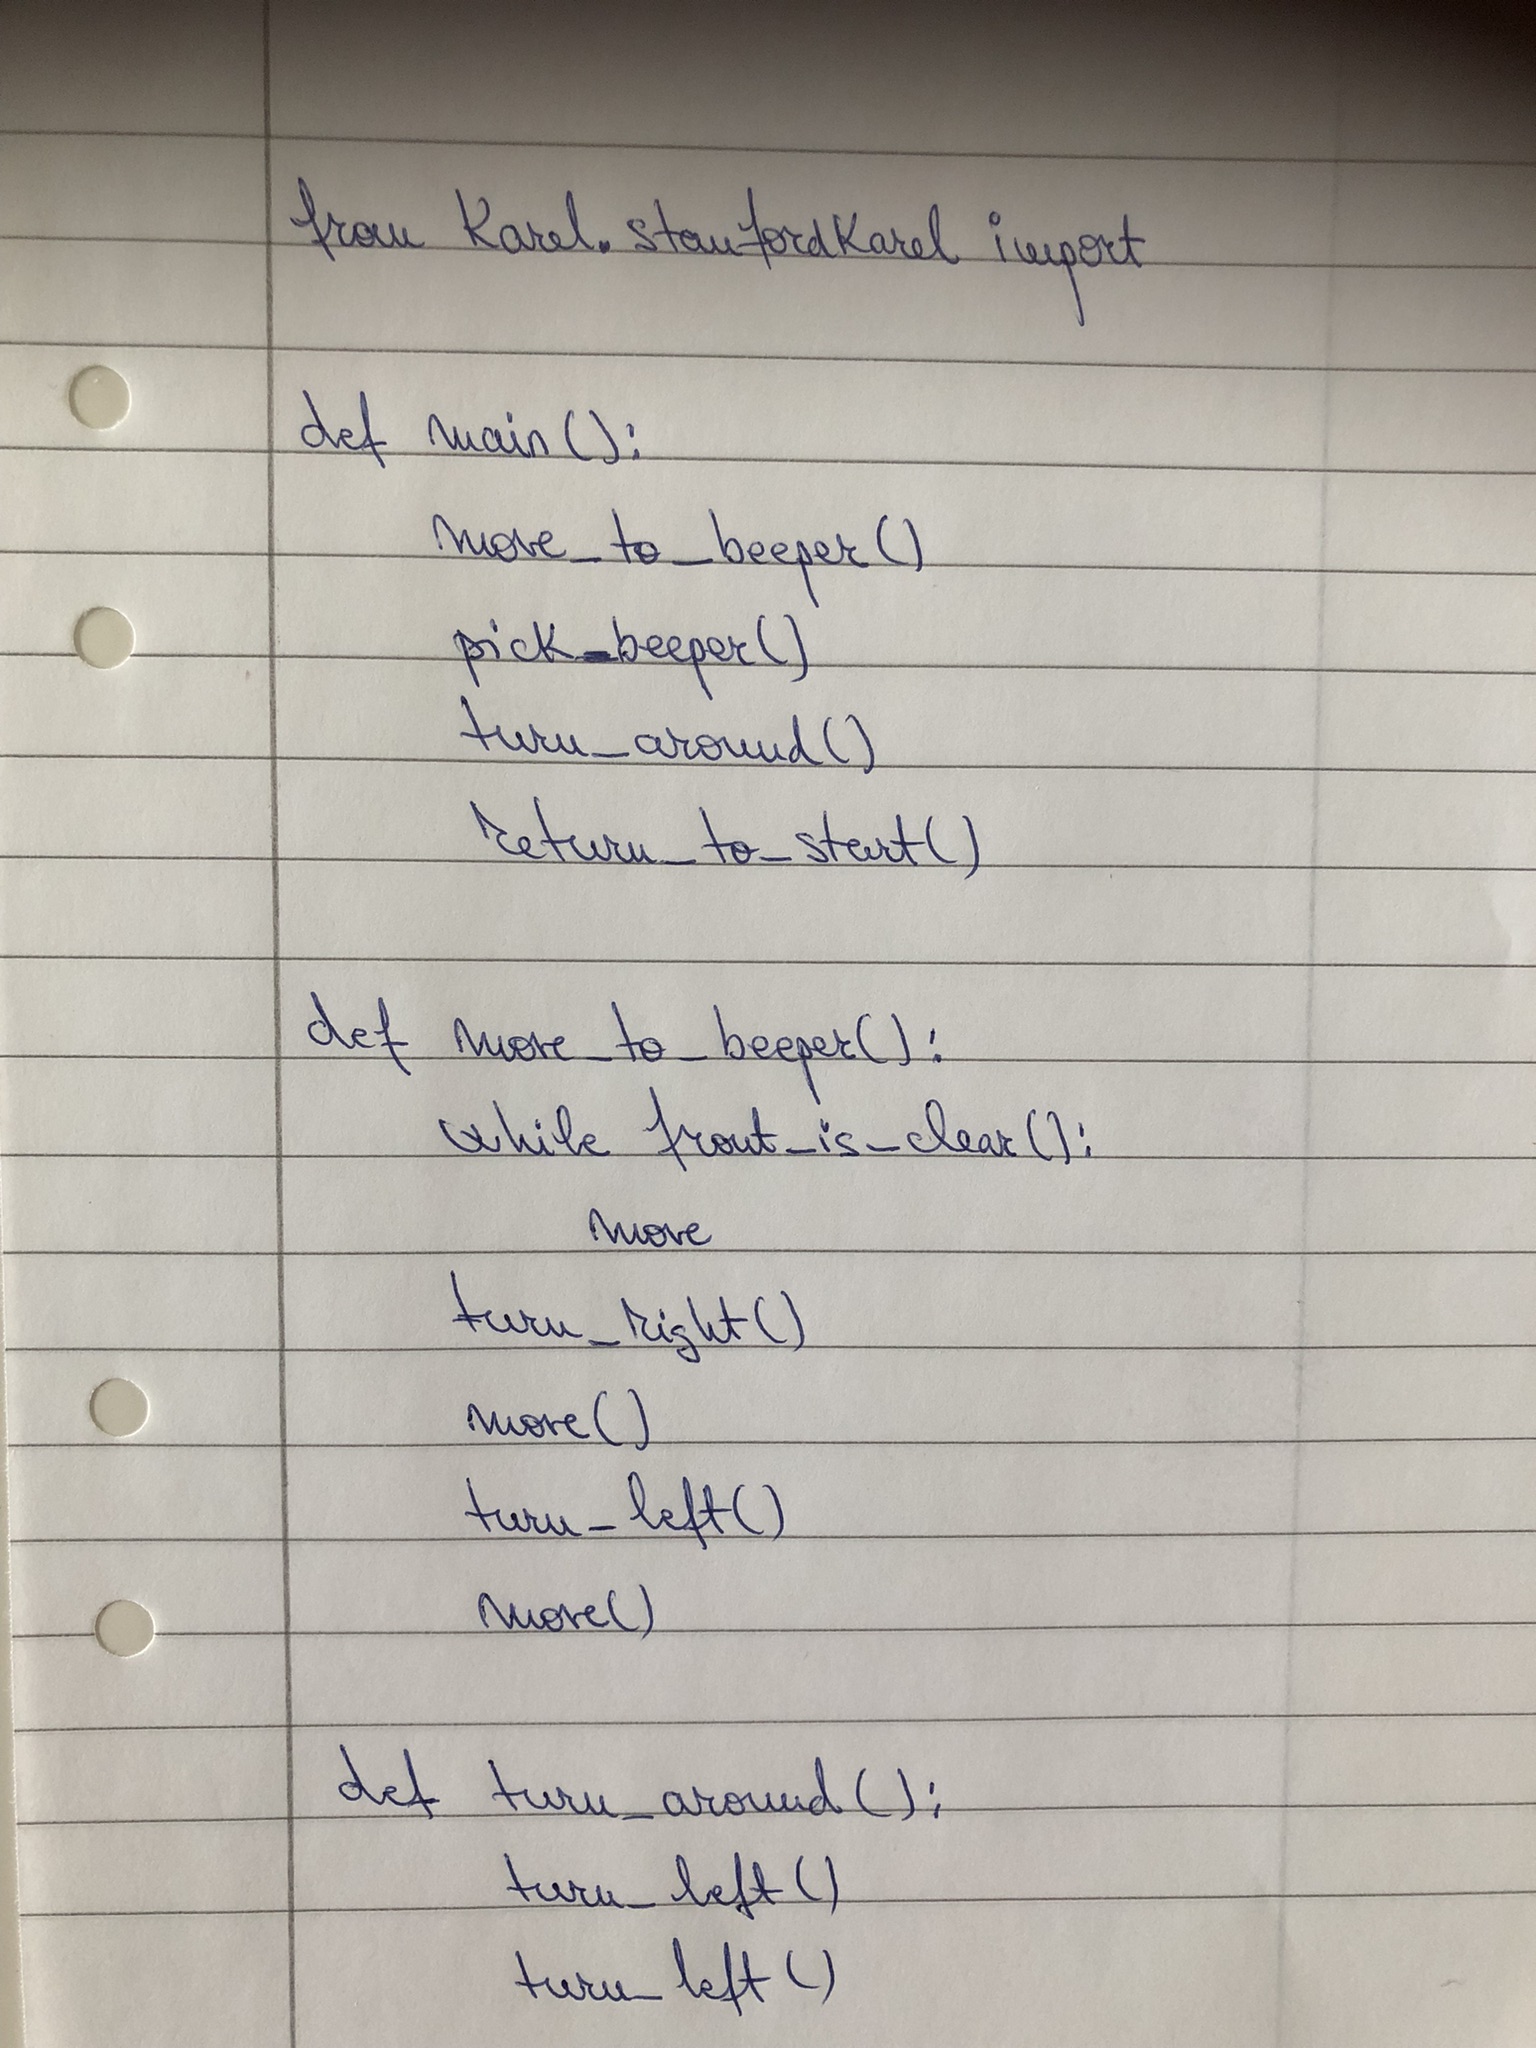 from Karel.stanfordKarel import
def main():
move_to_beeper()
pick_beeper()
turn_around()
return_to_start()
def move_to_beeper():
while front_is_clear():
move
turn_right()
move()
turn_left()
move()
def turn_around():
turn_left()
turn_left()